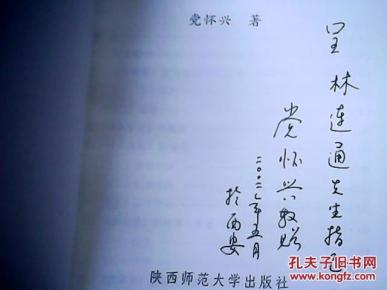 党怀兴 著
呈林连通先生指正
党怀兴敬赠
二〇〇二年五月
於西安
陕西师范大学出版社
孔夫子旧书网